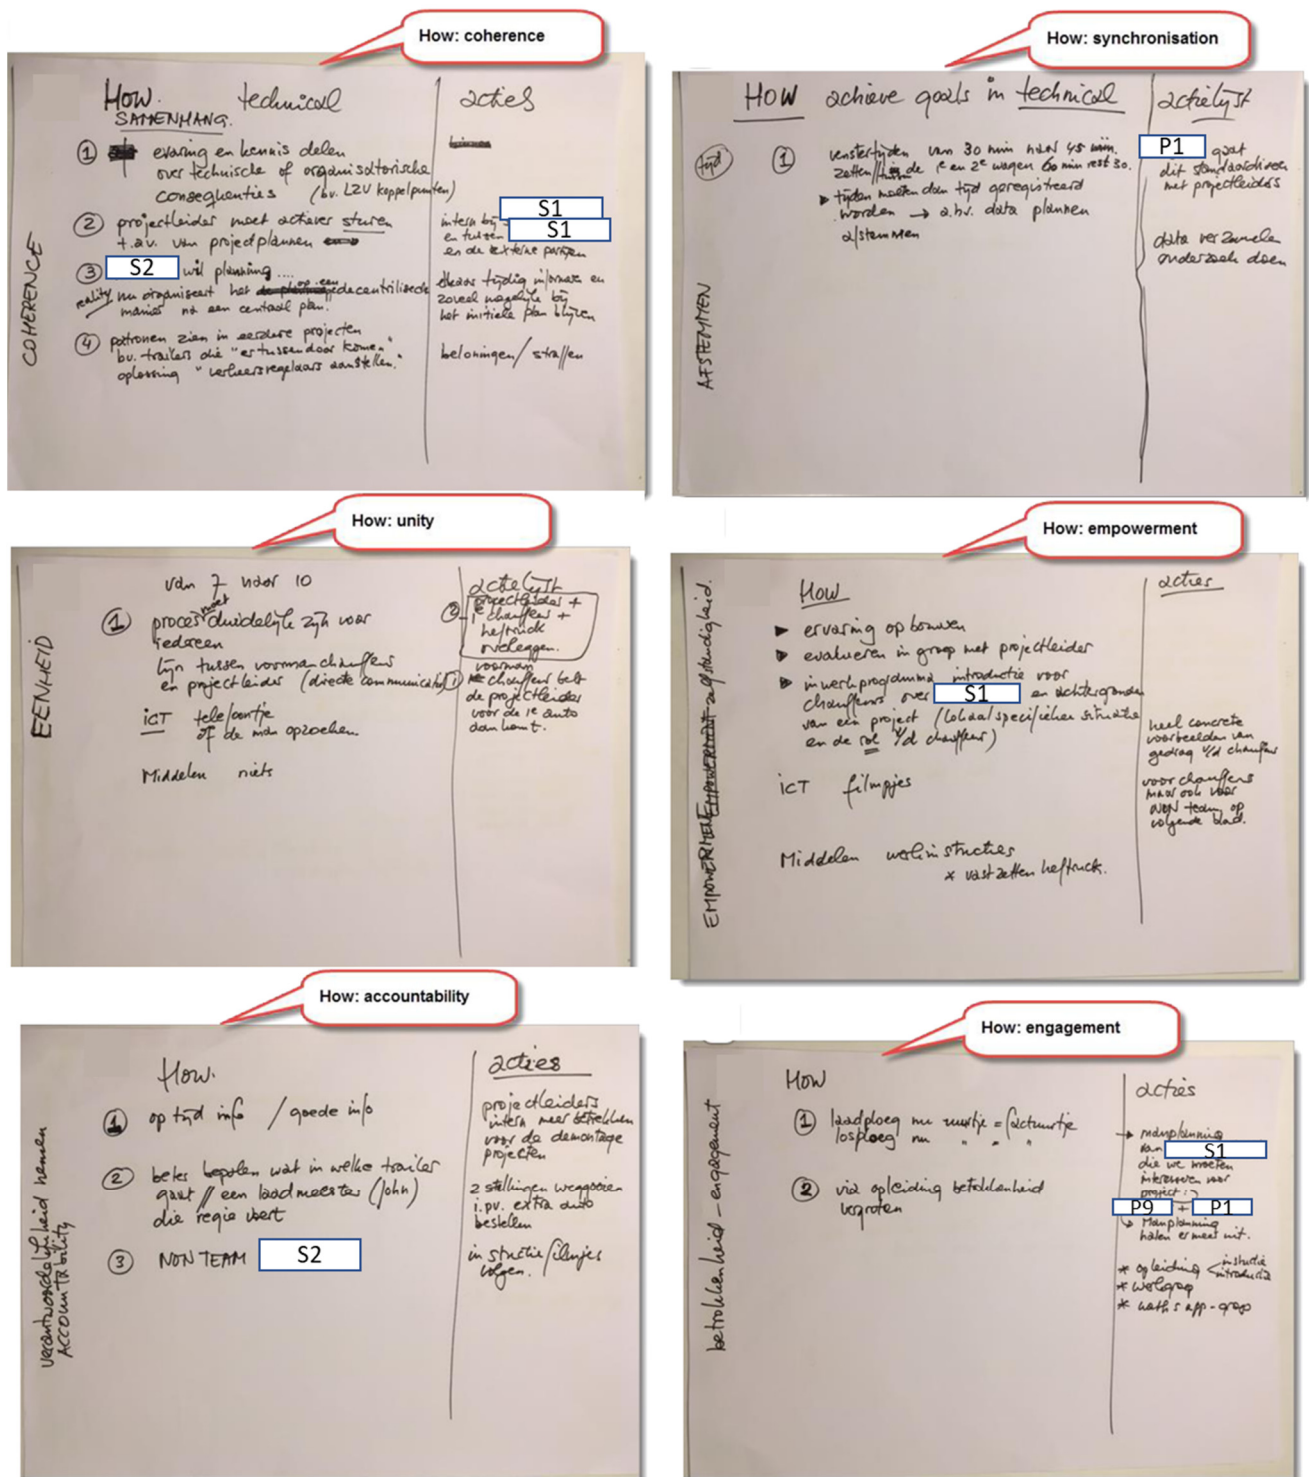 How: coherence
HOW. technical
SAMENHANG.
acties
COHERENCE
① ervaring en kennis delen
over technische of organisatorische
consequenties (bv. LZV koppelpunten)
② projectleider moet actiever sturen
t.a.v. van projectplannen
intern bij S1
en tussen S1
en de externe partijen
③ S2 wil planning ....
reality nu organiseert het decentraliseerde
manier na een centraal plan.
elkaar tijdig informeren en
zoveel mogelijk bij
het initiele plan blijven
④ patronen zien in eerdere projecten
bv. trailers die "er tussendoor komen"
oplossing "verkeersregelaars aanstellen."
beloningen / straffen
How: synchronisation
HOW achieve goals in technical
actielijst
AFSTEMMEN
tijd
① venstertijden van 30 min naar 45 min.
zetten // de 1e en 2e wagen 60 min rest 30.
▶ tijden moeten dan tijd geregistreerd
worden → a.h.v. data plannen
afstemmen
P1 gaat
dit standaardiseren
met projectleiders
data verzamelen
onderzoek doen
How: unity
van 7 naar 10
actielijst
EENHEID
① proces moet duidelijk zijn voor
iedereen
lijn tussen voorman chauffeurs
en projectleider (directe communicatie)
ICT telefoontje
of de man opzoeken.
Middelen niets
② projectleider +
1e chauffeur +
heftruck
overleggen.
① voorman
chauffeur belt
de projectleider
voor de 1e auto
aan komt.
How: empowerment
How
acties
EMPOWERMENT zelfstandigheid.
▶ ervaring opbouwen
▶ evalueren in groep met projectleider
▶ inwerkprogramma introductie voor
chauffeurs over S1 en achtergronden
van een project (lokaal specifieke situatie
en de rol v/d chauffeur)
ICT filmpjes
Middelen werkinstructies
* vastzetten heftruck.
heel concrete
voorbeelden van
gedrag v/d chauffeur
voor chauffeurs
maar ook voor
NON team op
volgende blad.
How: accountability
How.
acties
verantwoordelijkheid nemen
ACCOUNTABILITY
① op tijd info / goede info
② beter bepalen wat in welke trailer
gaat // een laadmeester (John)
die regie voert
③ NON TEAM S2
projectleiders
intern meer betrekken
voor de demontage
projecten
2 stellingen weggooien
i.p.v. extra auto
bestellen
instructie filmpjes
volgen.
How: engagement
HOW
acties
betrokkenheid - engagement
① laadploeg nu uurtje = factuurtje
losploeg nu " " "
② via opleiding betrokkenheid
vergroten
→ manplanning
van S1
die we moeten
interviewen voor
project :)
P9 + P1
↳ Manplanning
halen er meer uit.
* opleiding < instructie
introductie
* werkgroep
* whats app-groep